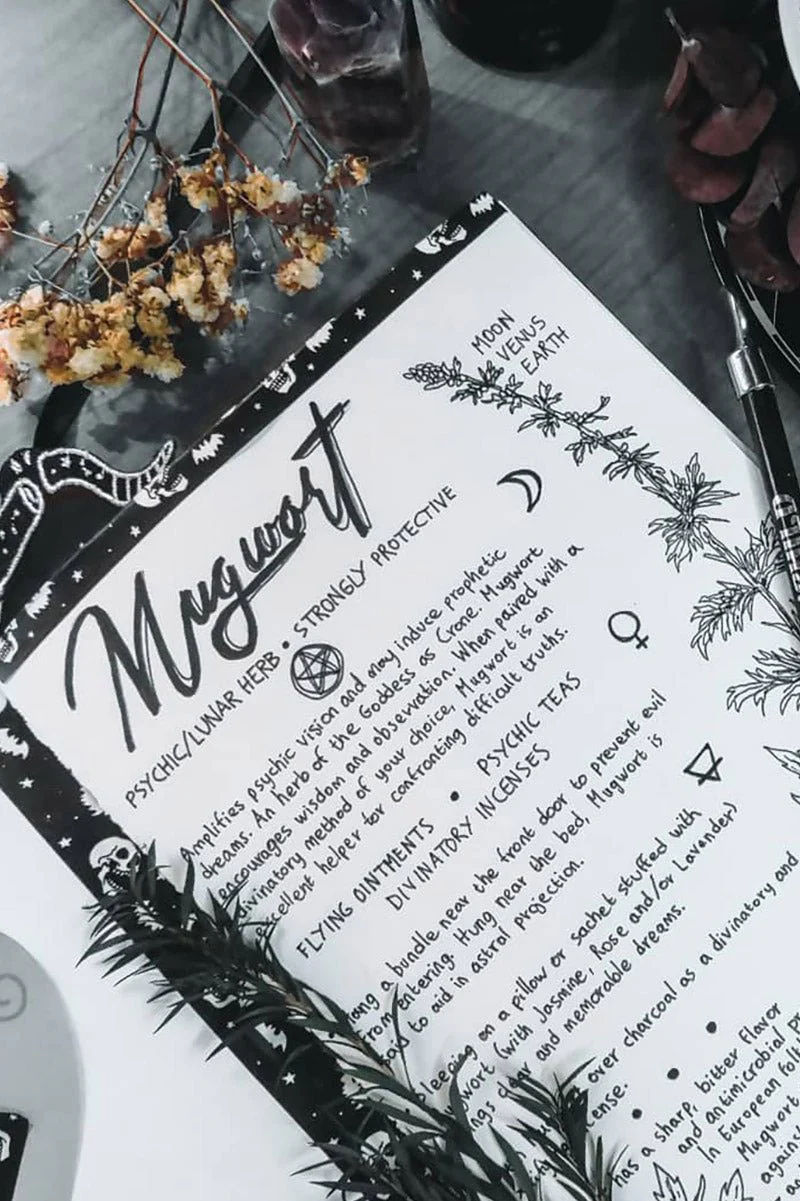 MOON
VENUS
EARTH
Mugwort
PSYCHIC/LUNAR HERB • STRONGLY PROTECTIVE
Amplifies psychic vision and may induce prophetic
dreams. An herb of the Goddess as Crone. Mugwort
encourages wisdom and observation. When paired with a
divinatory method of your choice, Mugwort is an
excellent helper for confronting difficult truths.
FLYING OINTMENTS • PSYCHIC TEAS
DIVINATORY INCENSES
a bundle near the front door to prevent evil
from entering. Hung near the bed, Mugwort is
to aid in astral projection.
Sleeping on a pillow or sachet stuffed with
(with Jasmine, Rose and/or Lavender)
and memorable dreams.
over charcoal as a divinatory and
has a sharp, bitter flavor
and antimicrobial
In European
Mugwort